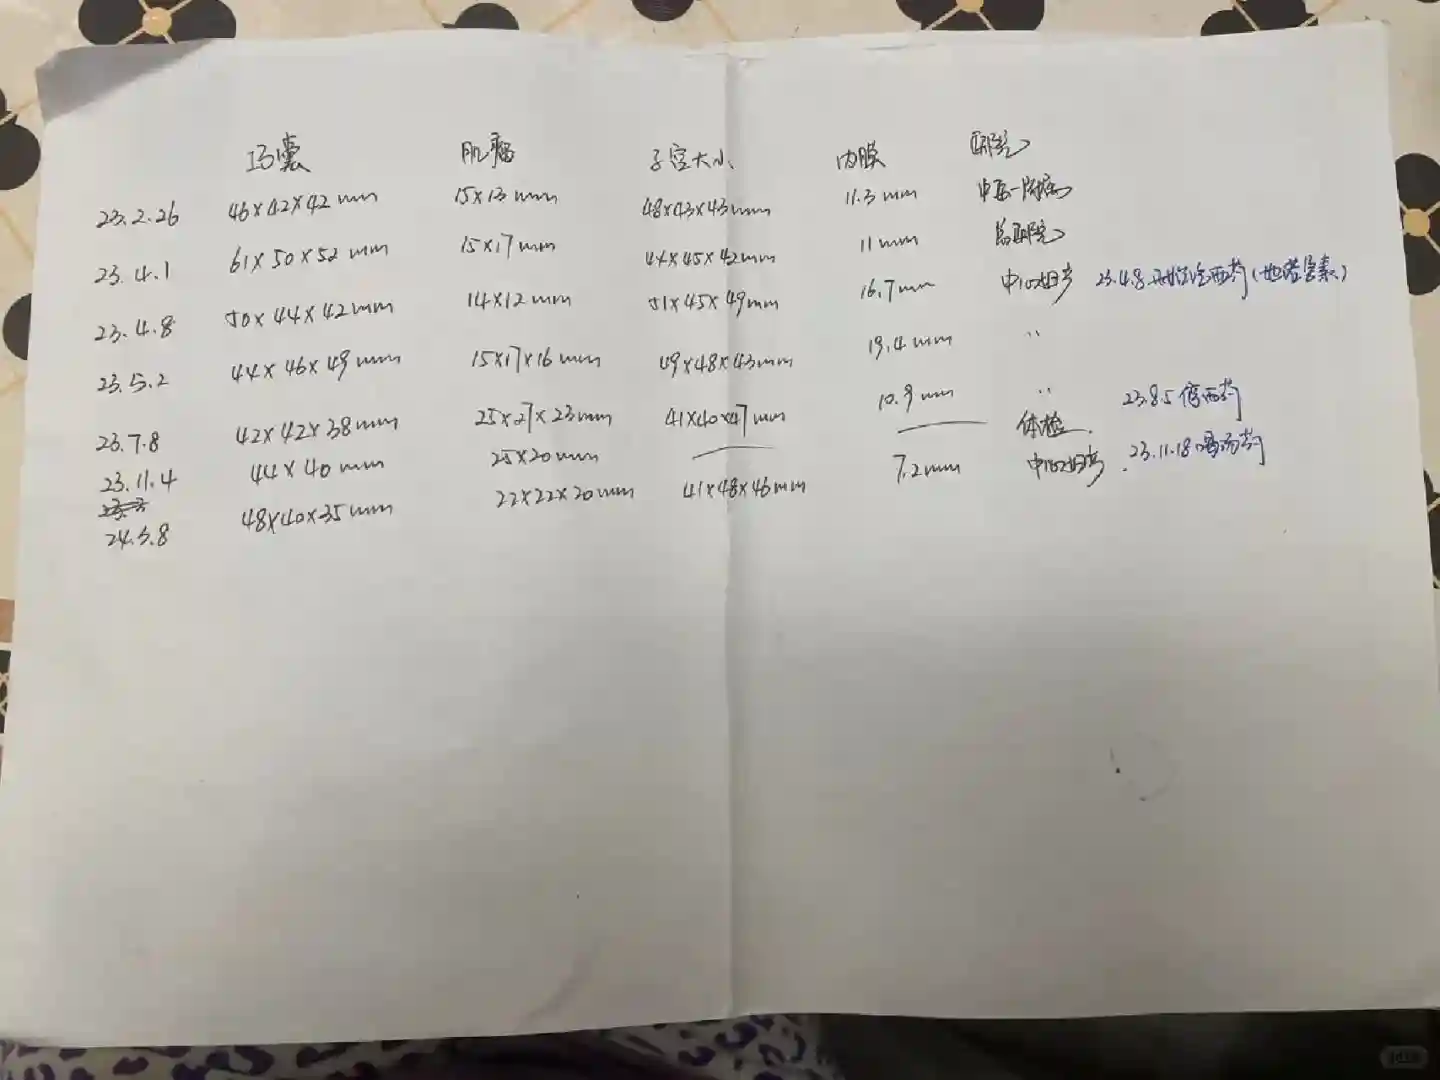 巧囊 肌瘤 子宫大小 内膜 医院
23.2.26 46×42×42mm 15×13mm 48×43×43mm 11.3mm 中医一附院
23.4.1 61×50×52mm 15×17mm 44×45×42mm 11mm 总医院
23.4.8 50×44×42mm 14×12mm 51×45×49mm 16.7mm 中心妇产 23.4.8 开始吃西药(地诺孕素)
23.5.2 44×46×49mm 15×17×16mm 49×48×43mm 19.4mm 〃
23.7.8 42×42×38mm 25×27×23mm 41×40×47mm 10.9mm 〃 23.8.5停西药
23.11.4 44×40mm 25×20mm — — 体检 23.11.18喝汤药
24.3.8 48×40×35mm 22×22×20mm 41×48×46mm 7.2mm 中心妇产